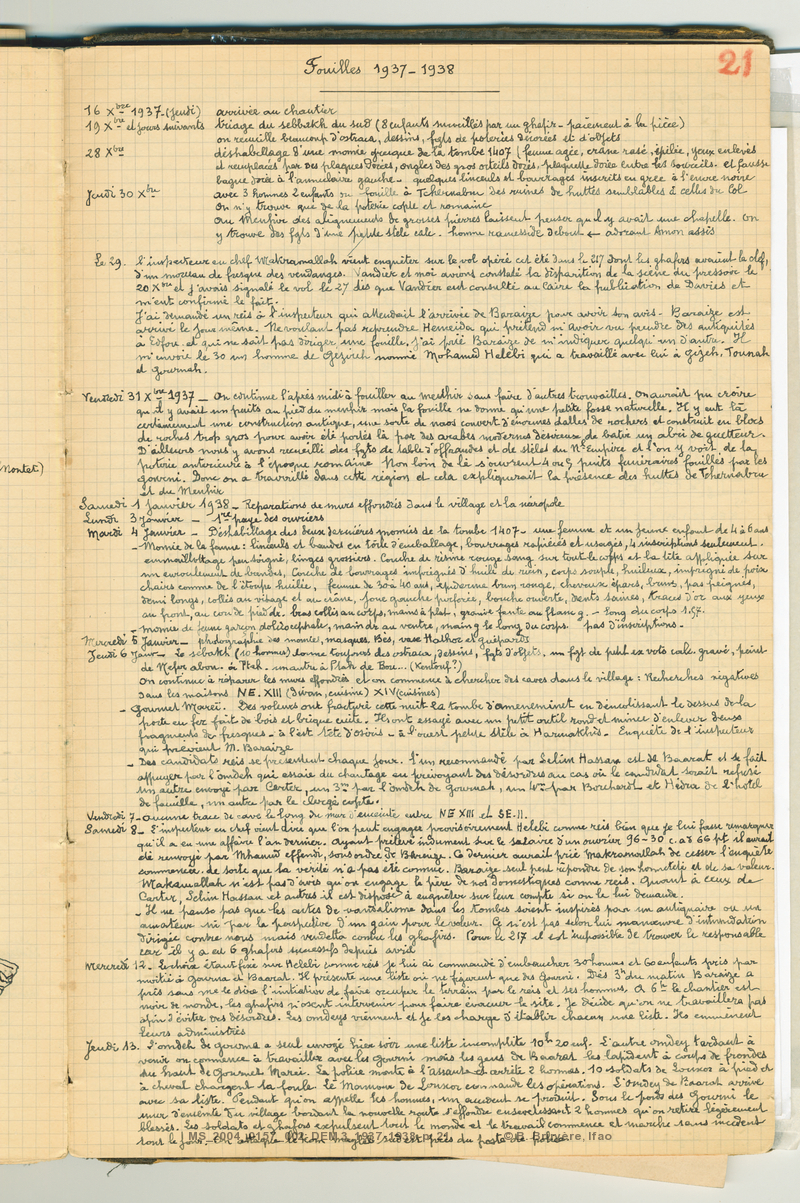 21
Fouilles 1937-1938
16 Xbre 1937 (jeudi) arrivée au chantier
19 Xbre et jours suivants triage du sebbakh du sud (8 enfants surveillés par un ghafir - paiement à la pièce)
on recueille beaucoup d'ostraca, dessins, fgts de poteries décorées et d'objets
28 Xbre déshabillage d'une momie grecque de la tombe 1407 (femme agée, crâne rasé, épilée, yeux enlevés
et remplacés par des plaques dorées, ongles des gros orteils dorés, plaquette dorée entre les sourcils. et fausse
bague dorée à l'annulaire gauche - quelques linceuls et bourrages inscrits en grec à l'encre noire
Jeudi 30 Xbre avec 3 hommes 2 enfants on fouille à Tchernabru des ruines de huttes semblables à celles du Col
on n'y trouve que de la poterie copte et romaine
au Menhir des alignements de grosses pierres laissent penser qu'il y avait une chapelle. on
y trouve des fgts d'une petite stèle calc. homme ramesside debout ← adorant Amon assis
Le 29. l'inspecteur en chef Makramallah vient enquêter sur le vol opéré cet été dans le 217 dont les ghafirs avaient la clef,
d'un morceau de fresque des vendanges. Vandier et moi avions constaté la disparition de la scène du pressoir le
20 Xbre et j'avais signalé le vol le 27 dès que Vandier eut consulté au Caire la publication de Davies et
m'eut confirmé le fait.
J'ai demandé un reis à l'inspecteur qui attendait l'arrivée de Baraize pour avoir son avis. Baraize est
arrivé le jour même. Ne voulant pas reprendre Hemeida qui prétend m'avoir vu prendre des antiquités
à Edfou. et qui ne sait pas diriger une fouille. j'ai prié Baraize de m'indiquer quelqu'un d'autre. Il
m'envoie le 30 un homme de Gezireh nommé Mohamed Helebi qui a travaillé avec lui à Gizeh, Tounah
et Gournah.
Vendredi 31 Xbre 1937 - On continue l'après midi à fouiller au menhir sans faire d'autres trouvailles. On aurait pu croire
qu'il y avait un puits au pied du menhir mais la fouille ne donne qu'une petite fosse naturelle. Il y eut là
certainement une construction antique, une sorte de naos couvert d'énormes dalles de rochers et construit en blocs
de roches trop gros pour avoir été portés là par des arabes modernes désireux de bâtir un abri de guetteur.
D'ailleurs nous y avons recueilli des fgts de table d'offrandes et de stèles du Nl Empire et l'on y voit de la
poterie antérieure à l'époque romaine. Non loin de là s'ouvrent 4 ou 5 puits funéraires fouillés par les
gourni. Donc on a travaillé dans cette région et cela expliquerait la présence des huttes de Tchernabru
et du Menhir
Samedi 1 janvier 1938 - Réparations de murs effondrés dans le village et la nécropole
Lundi 3 janvier - 1re paye des ouvriers
Mardi 4 Janvier - Déshabillage des deux dernières momies de la tombe 1407 - une femme et un jeune enfant de 4 à 6 ans
- Momie de la femme: linceuls et bandes en toile d'emballage, bourrages rapiécés et usagés, 4 inscriptions seulement.
emmaillottage peu soigné, linges grossiers. Couche de résine rouge sang sur tout le corps et la tête appliquée sur
un enroulement de bandes. Couche de bourrages imprégnés d'huile de ricin, corps souple, huileux, imprégné de poix
chairs comme de l'étoupe huilée, femme de 30 à 40 ans, épiderme brun rouge, cheveux épars, bruns, pas peignés,
demi longs, collés au visage et au crâne, joue gauche perforée, bouche ouverte, dents saines, traces d'or aux yeux
au front, au cou de pied dr. bras collés au corps, mains à plat, grande fente au flanc g. - long du corps 1.57.
- momie de jeune garçon dolicocéphale, main dr au ventre, main g le long du corps. pas d'inscriptions.
Mercredi 5 Janvier - photographie des momies, masques, Bès, vase Hathor et guépards
Jeudi 6 Janv - Le sebakh (10 hommes) donne toujours des ostraca, dessins, fgts d'objets, un fgt de petit ex voto calc. gravé, peint
de Nefer abou. à Ptah. un autre à Ptah de Bou... (Kentouf?)
On continue à réparer les murs effondrés et on commence à chercher des caves dans le village: Recherches négatives
dans les maisons NE. XIII (divan, cuisine) XIV (cuisines)
- Gournet Mareï. Des voleurs ont fracturé cette nuit la tombe d'ameneminet en démolissant le dessus de la
porte en fer fait de bois et brique cuite. Ils ont essayé avec un petit outil rond et mince d'enlever deux
fragments de fresques - à l'est tête d'osiris - à l'ouest petite stèle à Harmakhis. Enquête de l'inspecteur
qui prévient M. Baraize
- Des candidats reis se présentent chaque jour. L'un recommandé par Selim Hassan est de Baarat et se fait
appuyer par l'omdeh qui essaie du chantage en prévoyant des désordres au cas où le candidat serait refusé
un autre envoyé par Carter, un 3me par l'omdeh de Gournah, un 4me par Bouchardt et Hedra de l'hôtel
de famille, un autre par le clergé copte.
Vendredi 7 - aucune trace de cave le long du mur d'enceinte entre NE XIII et SE.II.
Samedi 8 - L'inspecteur en chef vient dire que l'on peut engager provisoirement Helebi comme reis bien que je lui fasse remarquer
qu'il a eu une affaire l'an dernier. Ayant prélevé indument sur le salaire d'un ouvrier 96-30 c.à.d 66 pt il aurait
été renvoyé par Mhamed effendi, sous ordre de Baraize. Ce dernier aurait prié Makramallah de cesser l'enquête
commencée. de sorte que la vérité n'a pas été connue. Baraize seul peut répondre de son honnêteté et de sa valeur.
Makramallah n'est pas d'avis qu'on engage le père de nos domestiques comme reis. Quant à ceux de
Carter, Selim Hassan et autres il est disposé à enquêter sur leur compte si on le lui demande.
- Il ne pense pas que les actes de vandalisme dans les tombes soient inspirés par un antiquaire ou un
amateur ni par la perspective d'un gain pour le voleur. Ce n'est pas selon lui manœuvre d'intimidation
dirigée contre nous mais vendetta contre les ghafirs. Pour le 217 il est impossible de trouver le responsable
car il y a eu 6 ghafirs successifs depuis avril
Mercredi 12 - Le choix étant fixé sur Helebi comme reis je lui ai commandé d'embaucher 30 hommes et 60 enfants pris par
moitié à Gourna et Baarat. Il présente une liste où ne figurent que des Gourni. Dès 3h du matin Baraize a
pris sans me le dire l'initiative de faire occuper le terrain par le reis et ses hommes. A 6h le chantier est
noir de monde, les ghafirs n'osent intervenir pour faire évacuer le site. Je décide qu'on ne travaillera pas
afin d'éviter des désordres. Les omdeys viennent et je les charge d'établir chacun une liste. Ils emmènent
leurs administrés
Jeudi 13. L'omdeh de Gourna a seul envoyé hier soir une liste incomplète 10h 20 enf. L'autre omdey tardant à
venir on commence à travailler avec les gourni mais les gens de Baarat les lapident à coups de frondes
du haut de Gournet Mareï. La police monte à l'assaut et arrête 2 hommes. 10 soldats de Louxor à pied et
à cheval chargent la foule. le Mamour de Louxor commande les opérations. L'omdey de Baarat arrive
avec sa liste. Pendant qu'on appelle les hommes, un accident se produit. Sous le poids des Gourni le
mur d'enceinte du village bordant la nouvelle route s'effondre ensevelissant 2 hommes qu'on retire légèrement
blessés. Les soldats et ghafirs expulsent tout le monde et le travail commence et marche sans incident
tout le jour.
MS_2004_0157_001 DEM 3_1937-1938, p. 21
© B. Bruyère, Ifao
Montet)